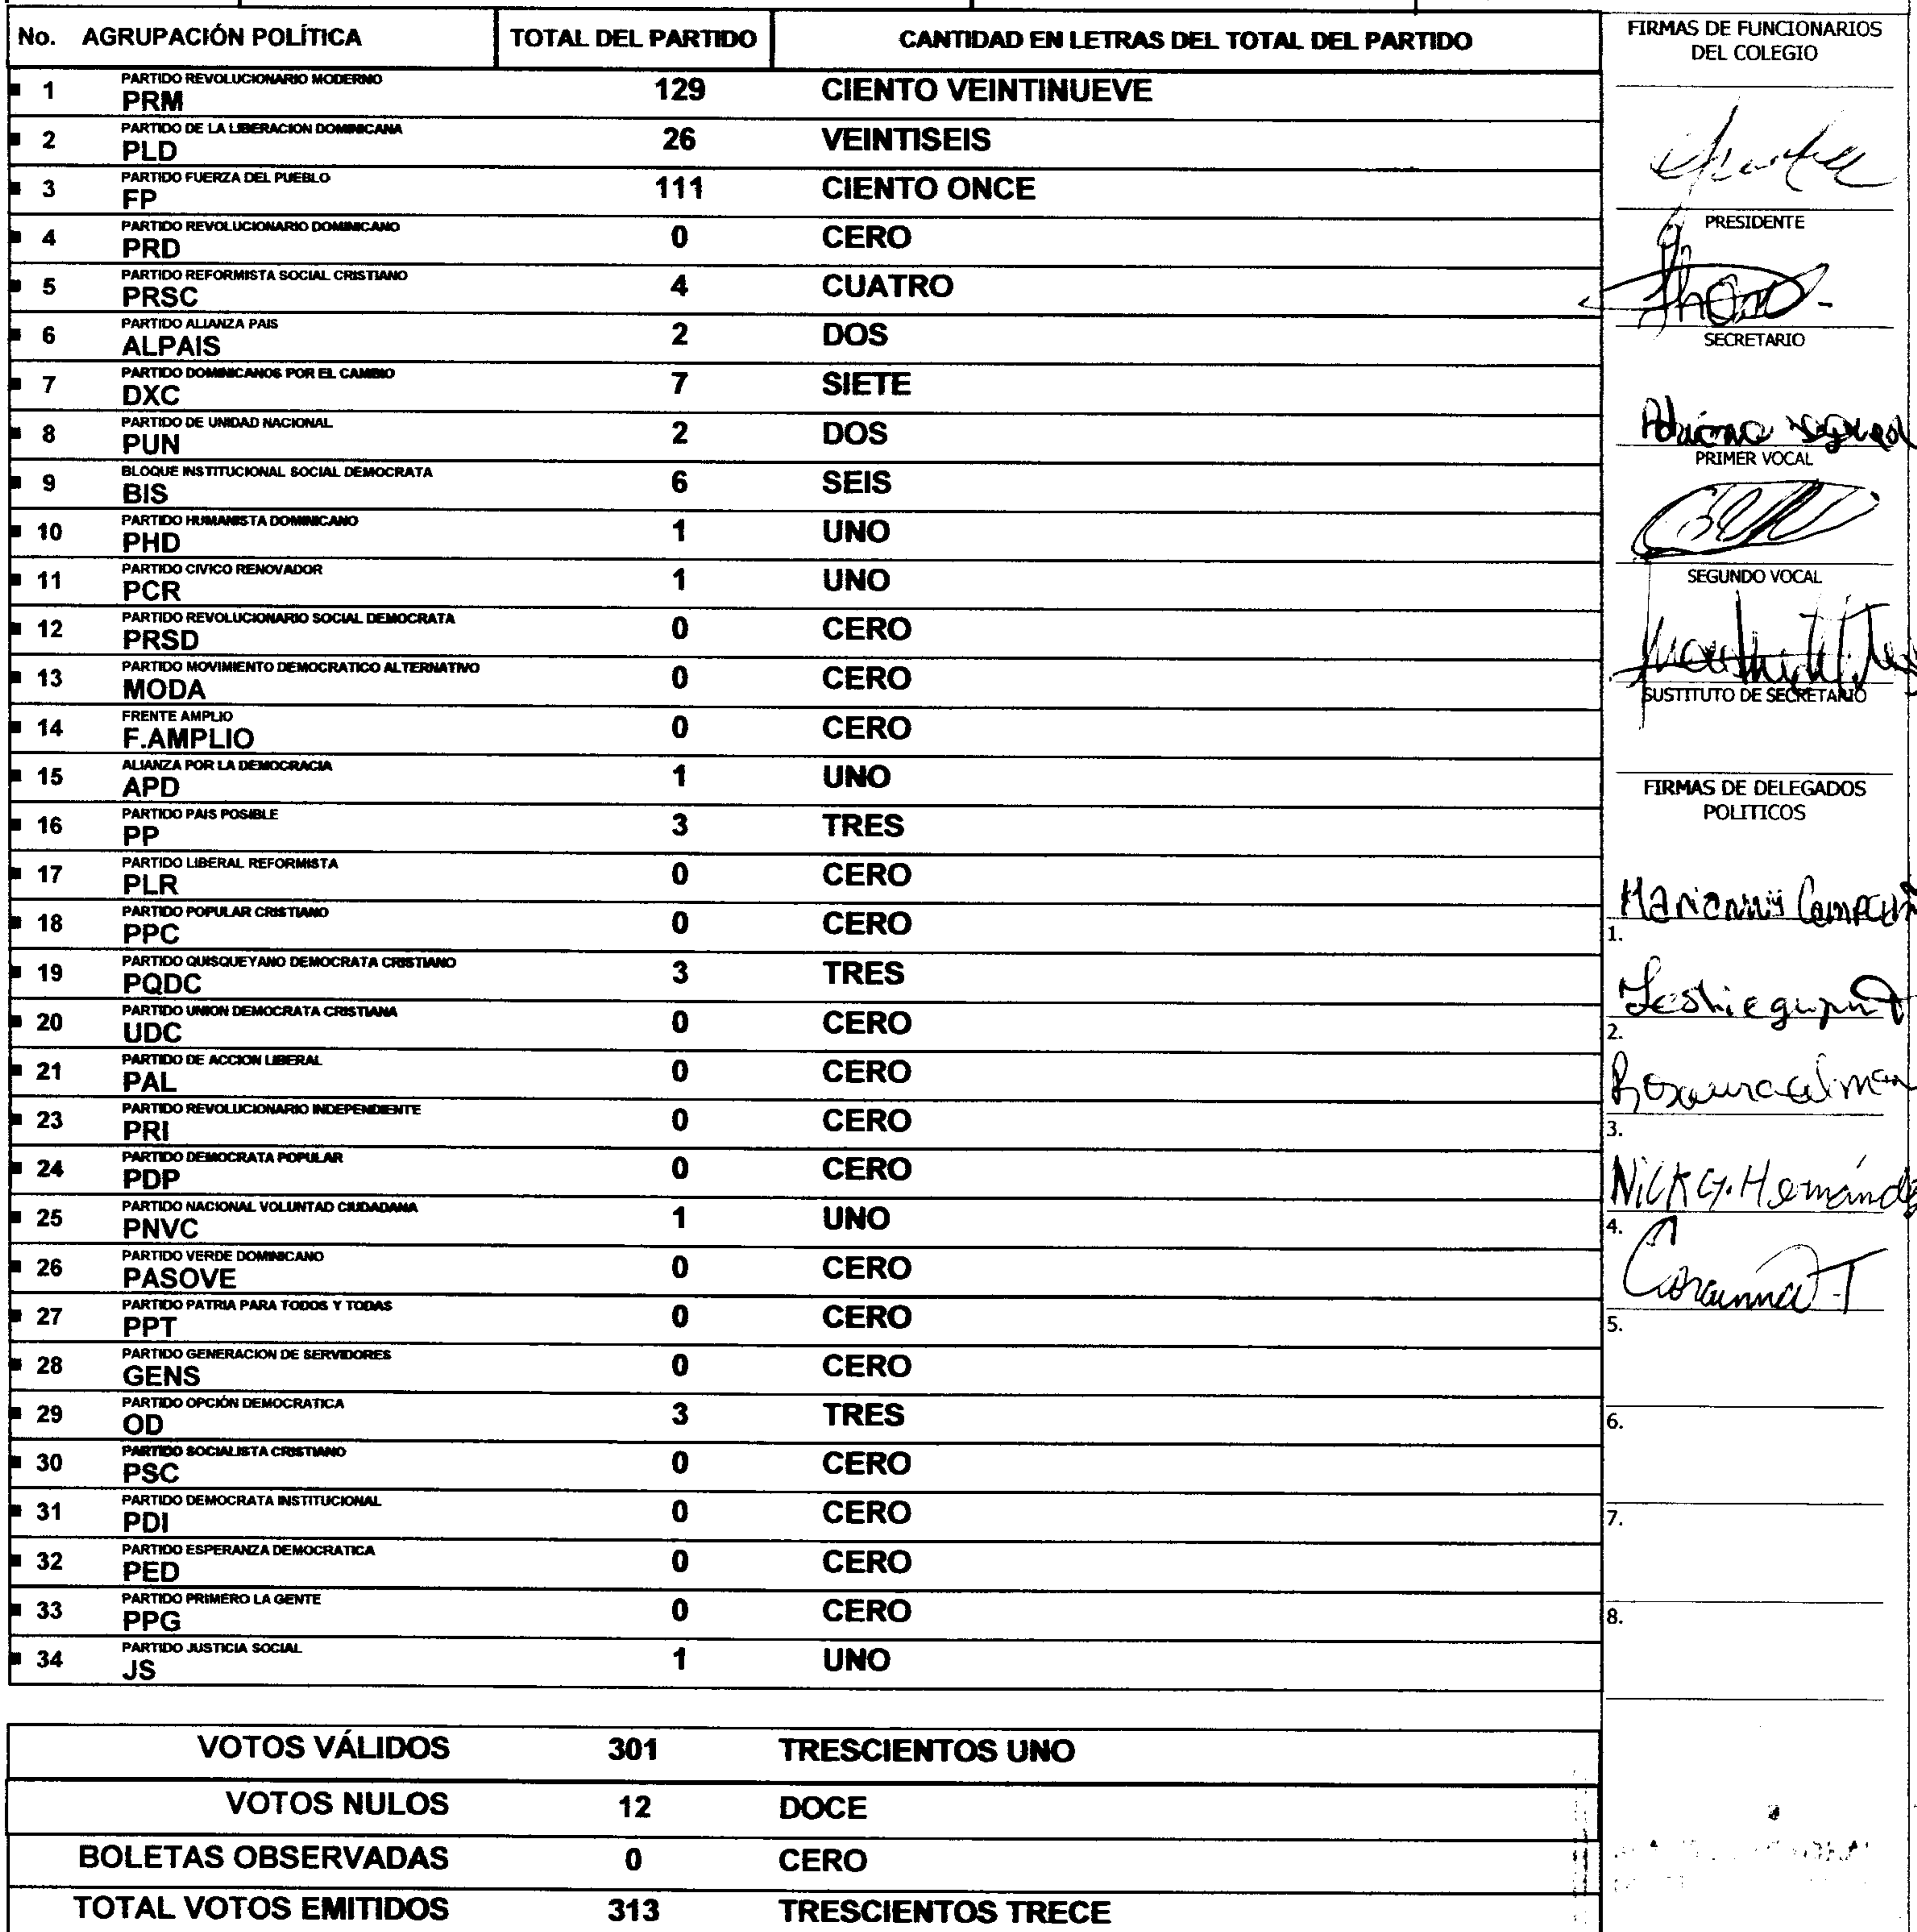 No. AGRUPACIÓN POLÍTICA TOTAL DEL PARTIDO CANTIDAD EN LETRAS DEL TOTAL DEL PARTIDO
PARTIDO REVOLUCIONARIO MODERNO
1 PRM 129 CIENTO VEINTINUEVE
PARTIDO DE LA LIBERACION DOMINICANA
2 PLD 26 VEINTISEIS
PARTIDO FUERZA DEL PUEBLO
3 FP 111 CIENTO ONCE
PARTIDO REVOLUCIONARIO DOMINICANO
4 PRD 0 CERO
PARTIDO REFORMISTA SOCIAL CRISTIANO
5 PRSC 4 CUATRO
PARTIDO ALIANZA PAIS
6 ALPAIS 2 DOS
PARTIDO DOMINICANOS POR EL CAMBIO
7 DXC 7 SIETE
PARTIDO DE UNIDAD NACIONAL
8 PUN 2 DOS
BLOQUE INSTITUCIONAL SOCIAL DEMOCRATA
9 BIS 6 SEIS
PARTIDO HUMANISTA DOMINICANO
10 PHD 1 UNO
PARTIDO CIVICO RENOVADOR
11 PCR 1 UNO
PARTIDO REVOLUCIONARIO SOCIAL DEMOCRATA
12 PRSD 0 CERO
PARTIDO MOVIMIENTO DEMOCRATICO ALTERNATIVO
13 MODA 0 CERO
FRENTE AMPLIO
14 F.AMPLIO 0 CERO
ALIANZA POR LA DEMOCRACIA
15 APD 1 UNO
PARTIDO PAIS POSIBLE
16 PP 3 TRES
PARTIDO LIBERAL REFORMISTA
17 PLR 0 CERO
PARTIDO POPULAR CRISTIANO
18 PPC 0 CERO
PARTIDO QUISQUEYANO DEMOCRATA CRISTIANO
19 PQDC 3 TRES
PARTIDO UNION DEMOCRATA CRISTIANA
20 UDC 0 CERO
PARTIDO DE ACCION LIBERAL
21 PAL 0 CERO
PARTIDO REVOLUCIONARIO INDEPENDIENTE
23 PRI 0 CERO
PARTIDO DEMOCRATA POPULAR
24 PDP 0 CERO
PARTIDO NACIONAL VOLUNTAD CIUDADANA
25 PNVC 1 UNO
PARTIDO VERDE DOMINICANO
26 PASOVE 0 CERO
PARTIDO PATRIA PARA TODOS Y TODAS
27 PPT 0 CERO
PARTIDO GENERACION DE SERVIDORES
28 GENS 0 CERO
PARTIDO OPCIÓN DEMOCRATICA
29 OD 3 TRES
PARTIDO SOCIALISTA CRISTIANO
30 PSC 0 CERO
PARTIDO DEMOCRATA INSTITUCIONAL
31 PDI 0 CERO
PARTIDO ESPERANZA DEMOCRATICA
32 PED 0 CERO
PARTIDO PRIMERO LA GENTE
33 PPG 0 CERO
PARTIDO JUSTICIA SOCIAL
34 JS 1 UNO
VOTOS VÁLIDOS 301 TRESCIENTOS UNO
VOTOS NULOS 12 DOCE
BOLETAS OBSERVADAS 0 CERO
TOTAL VOTOS EMITIDOS 313 TRESCIENTOS TRECE
FIRMAS DE FUNCIONARIOS
DEL COLEGIO
PRESIDENTE
SECRETARIO
PRIMER VOCAL
SEGUNDO VOCAL
SUSTITUTO DE SECRETARIO
FIRMAS DE DELEGADOS
POLITICOS
1.
2.
3.
Nick G. Hernánde
4.
5.
6.
7.
8.